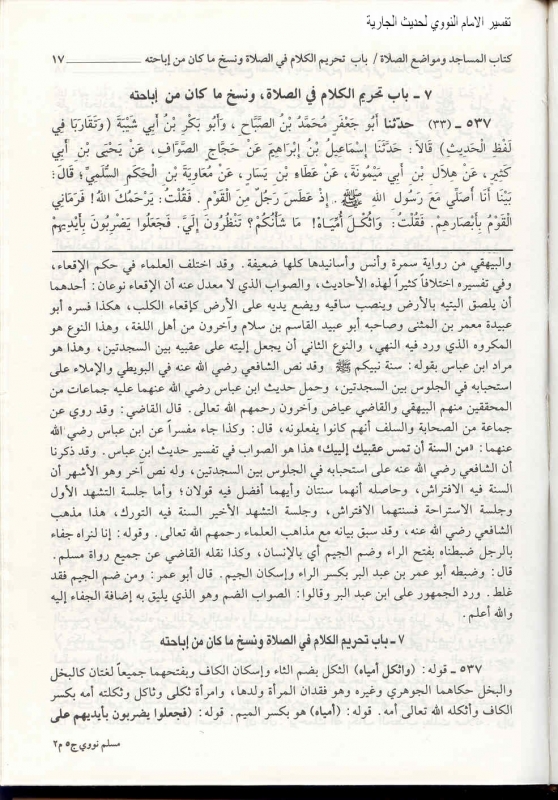 تفسير الامام النووي لحديث الجارية
كتاب المساجد ومواضع الصلاة / باب تحريم الكلام في الصلاة ونسخ ما كان من إباحته ــــــــ ١٧
٧ - باب تحريم الكلام في الصلاة، ونسخ ما كان من إباحته
٥٣٧ - (٣٣) حدثنا أَبُو جَعْفَرٍ مُحَمَّدُ بْنُ الصَّبَّاحِ، وَأَبُو بَكْرِ بْنُ أَبِي شَيْبَةَ (وَتَقَارَبَا فِي
لَفْظِ الْحَدِيثِ) قَالاَ: حَدَّثَنَا إِسْمَاعِيلُ بْنُ إِبْرَاهِيمَ عَنْ حَجَّاجٍ الصَّوَّافِ، عَنْ يَحْيَى بْنِ أَبِي
كَثِيرٍ، عَنْ هِلاَلِ بْنِ أَبِي مَيْمُونَةَ، عَنْ عَطَاءِ بْنِ يَسَارٍ، عَنْ مُعَاوِيَةَ بْنِ الْحَكَمِ السُّلَمِيِّ؛ قَالَ:
بَيْنَا أَنَا أُصَلِّي مَعَ رَسُولِ اللهِ ﷺ. إِذْ عَطَسَ رَجُلٌ مِنَ الْقَوْمِ. فَقُلْتُ: يَرْحَمُكَ اللهُ! فَرَمَانِي
الْقَوْمُ بِأَبْصَارِهِمْ. فَقُلْتُ: وَاثُكْلَ أُمِّيَاهْ! مَا شَأْنُكُمْ؟ تَنْظُرُونَ إِلَيَّ. فَجَعَلُوا يَضْرِبُونَ بِأَيْدِيهِمْ
والبيهقي من رواية سمرة وأنس وأسانيدها كلها ضعيفة. وقد اختلف العلماء في حكم الإقعاء،
وفي تفسيره اختلافاً كثيراً لهذه الأحاديث، والصواب الذي لا معدل عنه أن الإقعاء نوعان: أحدهما
أن يلصق أليتيه بالأرض وينصب ساقيه ويضع يديه على الأرض كإقعاء الكلب، هكذا فسره أبو
عبيدة معمر بن المثنى وصاحبه أبو عبيد القاسم بن سلام وآخرون من أهل اللغة، وهذا النوع هو
المكروه الذي ورد فيه النهي، والنوع الثاني أن يجعل إليته على عقبيه بين السجدتين، وهذا هو
مراد ابن عباس بقوله: سنة نبيكم ﷺ وقد نص الشافعي رضي الله عنه في البويطي والإملاء على
استحبابه في الجلوس بين السجدتين، وحمل حديث ابن عباس رضي الله عنهما عليه جماعات من
المحققين منهم البيهقي والقاضي عياض وآخرون رحمهم الله تعالى. قال القاضي: وقد روي عن
جماعة من الصحابة والسلف أنهم كانوا يفعلونه، قال: وكذا جاء مفسراً عن ابن عباس رضي الله
عنهما: «من السنة أن تمس عقبيك إلييك» هذا هو الصواب في تفسير حديث ابن عباس. وقد ذكرنا
أن الشافعي رضي الله عنه على استحبابه في الجلوس بين السجدتين، وله نص آخر وهو الأشهر أن
السنة فيه الافتراش، وحاصله أنهما سنتان وأيهما أفضل فيه قولان؛ وأما جلسة التشهد الأول
وجلسة الاستراحة فسنتهما الافتراش، وجلسة التشهد الأخير السنة فيه التورك، هذا مذهب
الشافعي رضي الله عنه، وقد سبق بيانه مع مذاهب العلماء رحمهم الله تعالى. وقوله: إنا لنراه جفاء
بالرجل ضبطناه بفتح الراء وضم الجيم أي بالإنسان، وكذا نقله القاضي عن جميع رواة مسلم.
قال: وضبطه أبو عمر بن عبد البر بكسر الراء وإسكان الجيم. قال أبو عمر: ومن ضم الجيم فقد
غلط. ورد الجمهور على ابن عبد البر وقالوا: الصواب الضم وهو الذي يليق به إضافة الجفاء إليه
والله أعلم.
٧ - باب تحريم الكلام في الصلاة ونسخ ما كان من إباحته
٥٣٧ - قوله: (واثكل أمياه) الثكل بضم الثاء وإسكان الكاف وبفتحهما جميعاً لغتان كالبخل
والبخل حكاهما الجوهري وغيره وهو فقدان المرأة ولدها، وامرأة ثكلى وثاكل وثكلته أمه بكسر
الكاف وأثكله الله تعالى أمه. قوله: (أمياه) هو بكسر الميم. قوله: (فجعلوا يضربون بأيديهم على
مسلم نووي ج٥ م٢